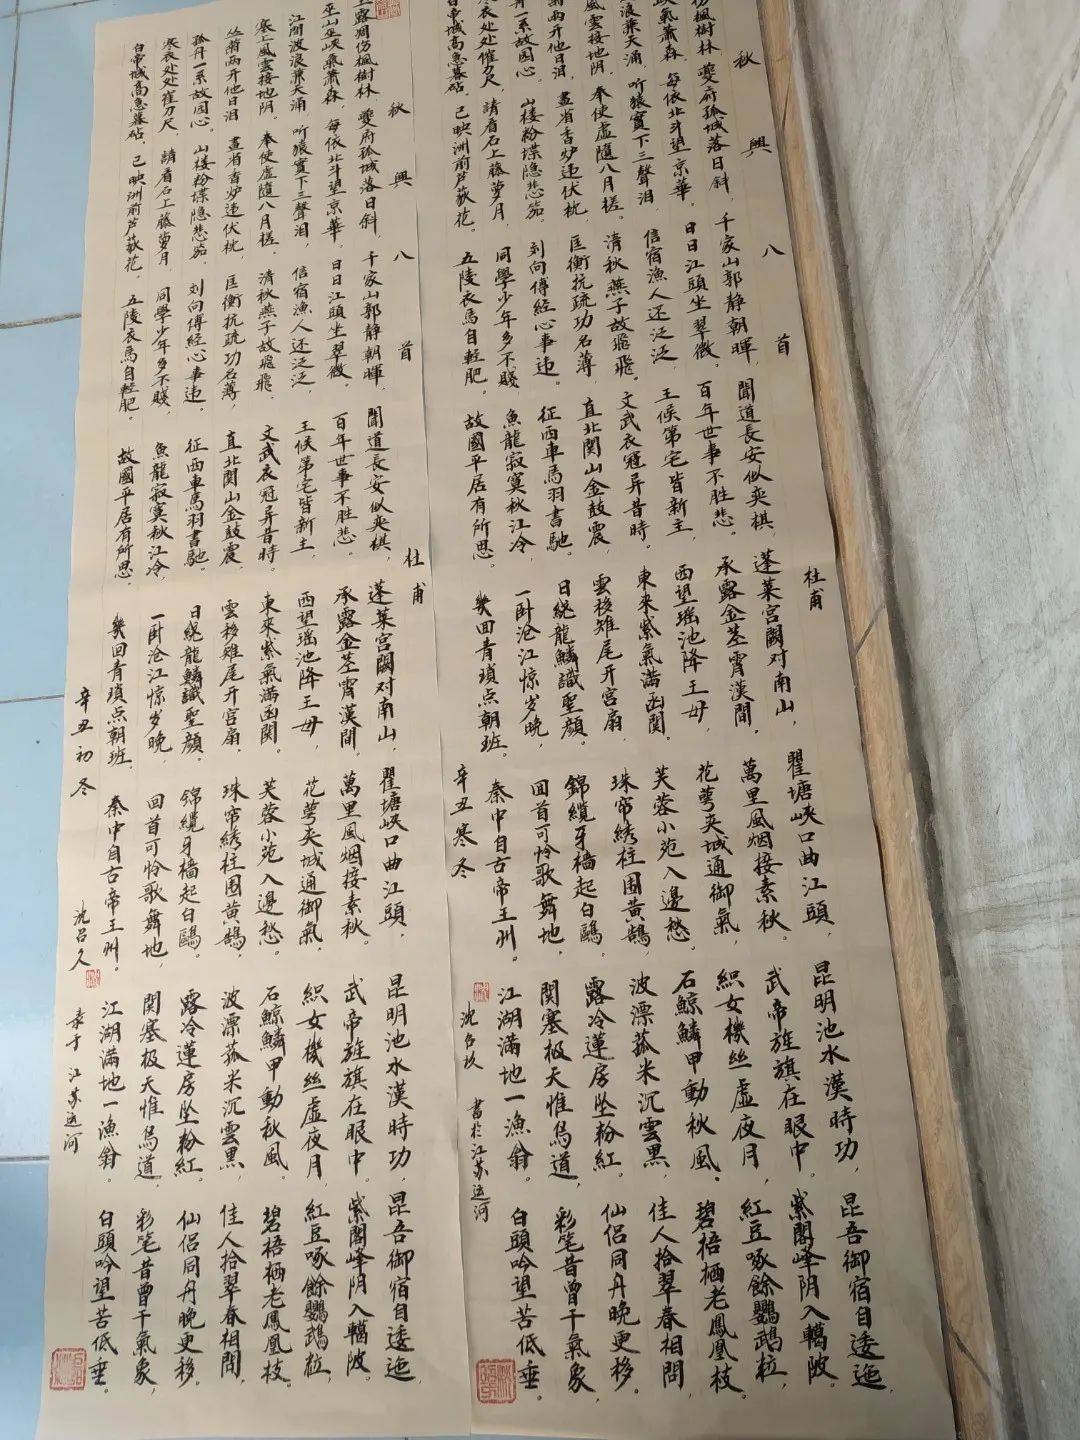 秋興八首 杜甫
伤楓樹林,
峡氣蕭森。
浪兼天涌,
風雲接地阴。
菊两开他日泪,
舟一系故园心。
衣处处催刀尺,
白帝城高急暮砧。
夔府孤城落日斜,
每依北斗望京華。
听猿實下三聲泪,
奉使虚隨八月槎。
畫省香炉违伏枕,
山楼粉堞隐悲笳。
請看石上藤萝月,
已映洲前芦荻花。
千家山郭静朝暉,
日日江頭坐翠微。
信宿漁人还泛泛,
清秋燕子故飛飛。
匡衡抗疏功名薄,
刘向傳經心事违。
同學少年多不賤,
五陵衣馬自輕肥。
聞道長安似奕棋,
百年世事不胜悲。
王侯第宅皆新主,
文武衣冠异昔時。
直北関山金鼓震,
征西車馬羽書馳。
魚龍寂寞秋江冷,
故國平居有所思。
蓬莱宫闕对南山,
承露金茎霄漢間。
西望瑶池降王母,
東來紫氣滿函関。
雲移雉尾开宫扇,
日繞龍鱗識聖顔。
一卧沧江惊岁晚,
幾回青瑣点朝班。
瞿塘峡口曲江頭,
萬里風烟接素秋。
花萼夹城通御氣,
芙蓉小苑入邊愁。
珠帘綉柱围黄鵠,
錦纜牙樯起白鷗。
回首可怜歌舞地,
秦中自古帝王州。
昆明池水漢時功,
武帝旌旗在眼中。
織女機丝虚夜月,
石鯨鱗甲動秋風。
波漂菰米沉雲黑,
露冷蓮房坠粉紅。
関塞极天惟鸟道,
江湖滿地一漁翁。
昆吾御宿自逶迤,
紫閣峰阴入鞨陂。
紅豆啄餘鸚鵡粒,
碧梧栖老鳳凰枝。
佳人拾翠春相問,
仙侣同舟晚更移。
彩笔昔曾干氣象,
白頭吟望苦低垂。
辛丑寒冬 沈 書於江苏运河
秋興八首 杜甫
露凋伤楓樹林,
巫山巫峡氣蕭森。
江間波浪兼天涌,
塞上風雲接地阴。
丛菊两开他日泪,
孤舟一系故园心。
寒衣处处催刀尺,
白帝城高急暮砧。
夔府孤城落日斜,
每依北斗望京華。
听猿實下三聲泪,
奉使虚隨八月槎。
畫省香炉违伏枕,
山楼粉堞隐悲笳。
請看石上藤萝月,
已映洲前芦荻花。
千家山郭静朝暉,
日日江頭坐翠微。
信宿漁人还泛泛,
清秋燕子故飛飛。
匡衡抗疏功名薄,
刘向傳經心事违。
同學少年多不賤,
五陵衣馬自輕肥。
聞道長安似奕棋,
百年世事不胜悲。
王侯第宅皆新主,
文武衣冠异昔時。
直北関山金鼓震,
征西車馬羽書馳。
魚龍寂寞秋江冷,
故國平居有所思。
蓬莱宫闕对南山,
承露金茎霄漢間。
西望瑶池降王母,
東來紫氣滿函関。
雲移雉尾开宫扇,
日繞龍鱗識聖顔。
一卧沧江惊岁晚,
幾回青瑣点朝班。
瞿塘峡口曲江頭,
萬里風烟接素秋。
花萼夹城通御氣,
芙蓉小苑入邊愁。
珠帘綉柱围黄鵠,
錦纜牙樯起白鷗。
回首可怜歌舞地,
秦中自古帝王州。
昆明池水漢時功,
武帝旌旗在眼中。
織女機丝虚夜月,
石鯨鱗甲動秋風。
波漂菰米沉雲黑,
露冷蓮房坠粉紅。
関塞极天惟鸟道,
江湖滿地一漁翁。
昆吾御宿自逶迤,
紫閣峰阴入鞨陂。
紅豆啄餘鸚鵡粒,
碧梧栖老鳳凰枝。
佳人拾翠春相問,
仙侣同舟晚更移。
彩笔昔曾干氣象,
白頭吟望苦低垂。
辛丑初冬 沈吕久 书于江苏运河